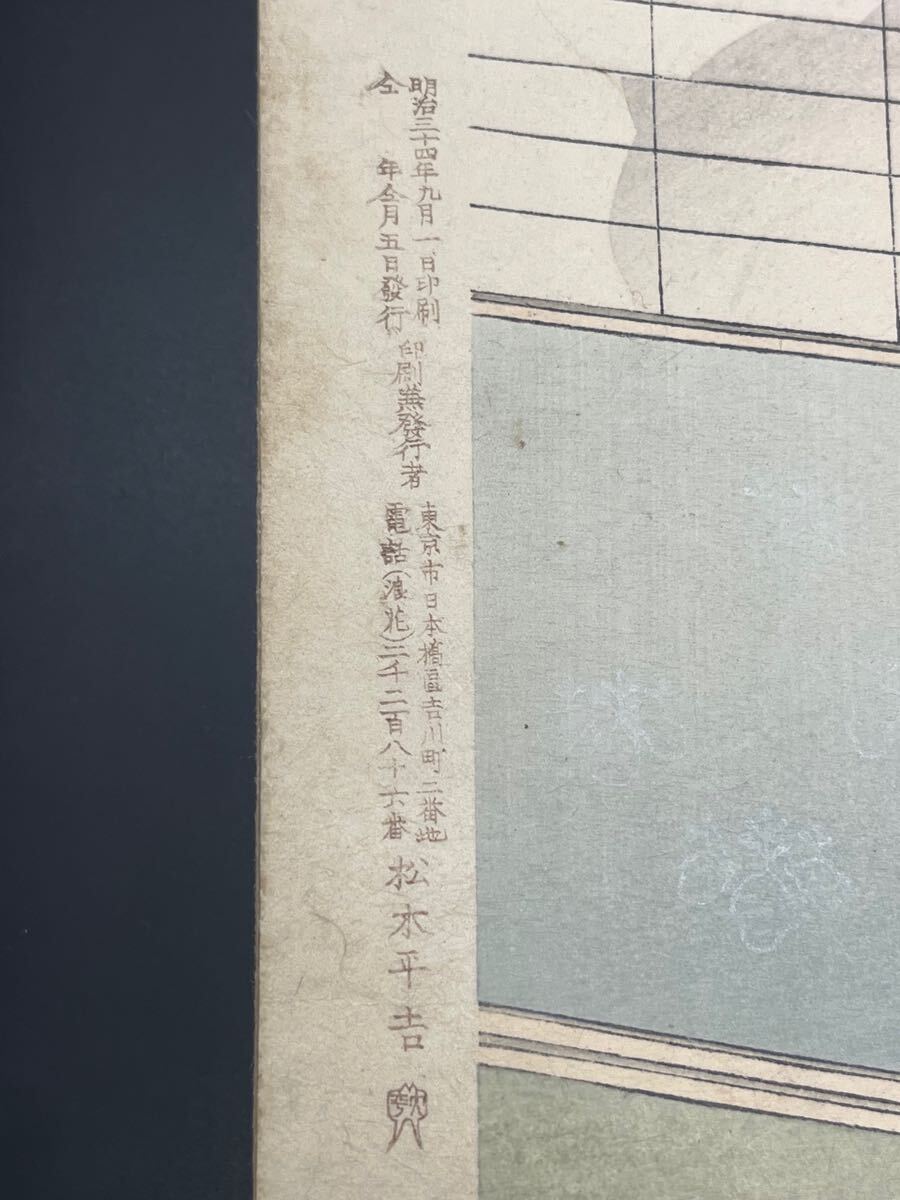 明治三十四年九月一日印刷
仝年仝月五日發行
印刷兼發行者
東京市日本橋區吉川町二番地
電話(浪花)二千二百八十六番
松木平吉